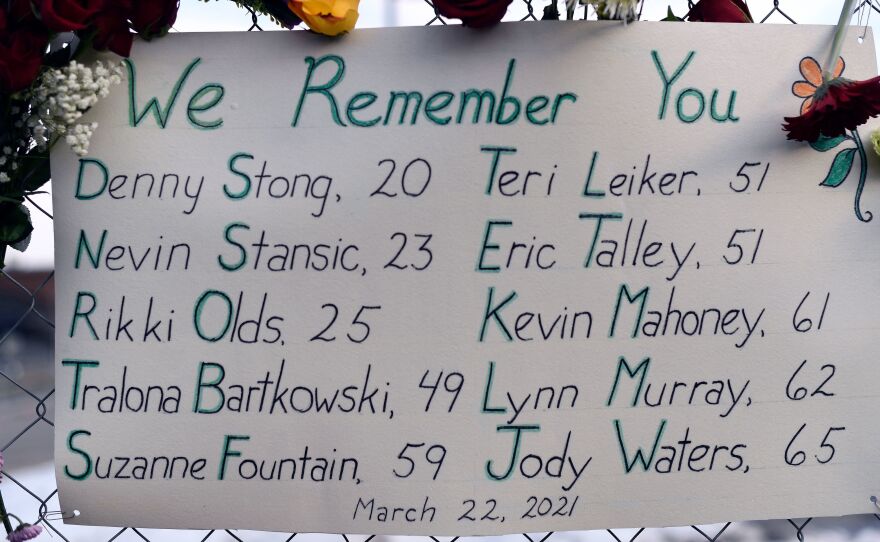 We Remember You
Denny Stong, 20
Nevin Stansic, 23
Rikki Olds, 25
Tralona Bartkowski, 49
Suzanne Fountain, 59
Teri Leiker, 51
Eric Talley, 51
Kevin Mahoney, 61
Lynn Murray, 62
Jody Waters, 65
March 22, 2021